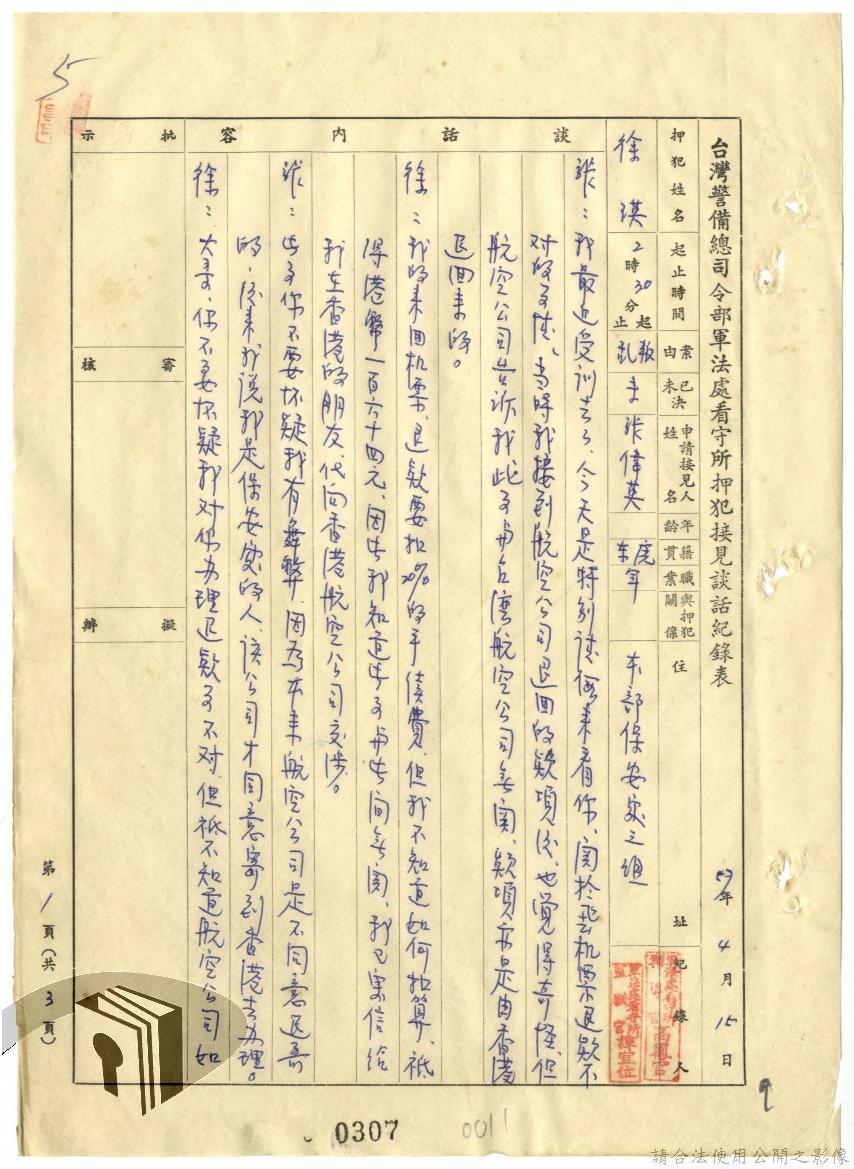 台灣警備總司令部軍法處看守所押犯接見談話紀錄表
57年4月15日
押犯姓名
徐瑛
起止時間
2時30分起止
案由
叛乱
已決未決
未
申請接見人姓名
張偉英
年齡
籍貫
廣東
職業
軍
與押犯關係
住址
本部保安處三組
紀錄人
談話內容
張：我最近受訓去了、今天是特別請假來看你、関於飛机票退欵不
对的事情、当時我接到航空公司退回的欵項後、也覺得奇怪、但
航空公司告訴我此事与台湾航空公司無関、欵項亦是由香港
退回來的。
徐：我的來回机票、退欵要扣20%的手續費、但我不知道如何扣算、祇
得港幣一百六十四元、因此我知道此事与此间無関、我已寫信给
我在香港的朋友、代向香港航空公司交涉。
張：此事你不要怀疑我有舞弊、因為本來航空公司是不同意退
的、後來我說我是保安處的人、該公司才同意寄到香港去办理。
徐：大哥、你不要怀疑我对你办理退欵事不对、但祇不知道航空公司如
批示
審核
擬辦
第1頁（共3頁）
5
軍法處看守所
監獄官 譚宜位
0307
0011
9
請合法使用公開之影像